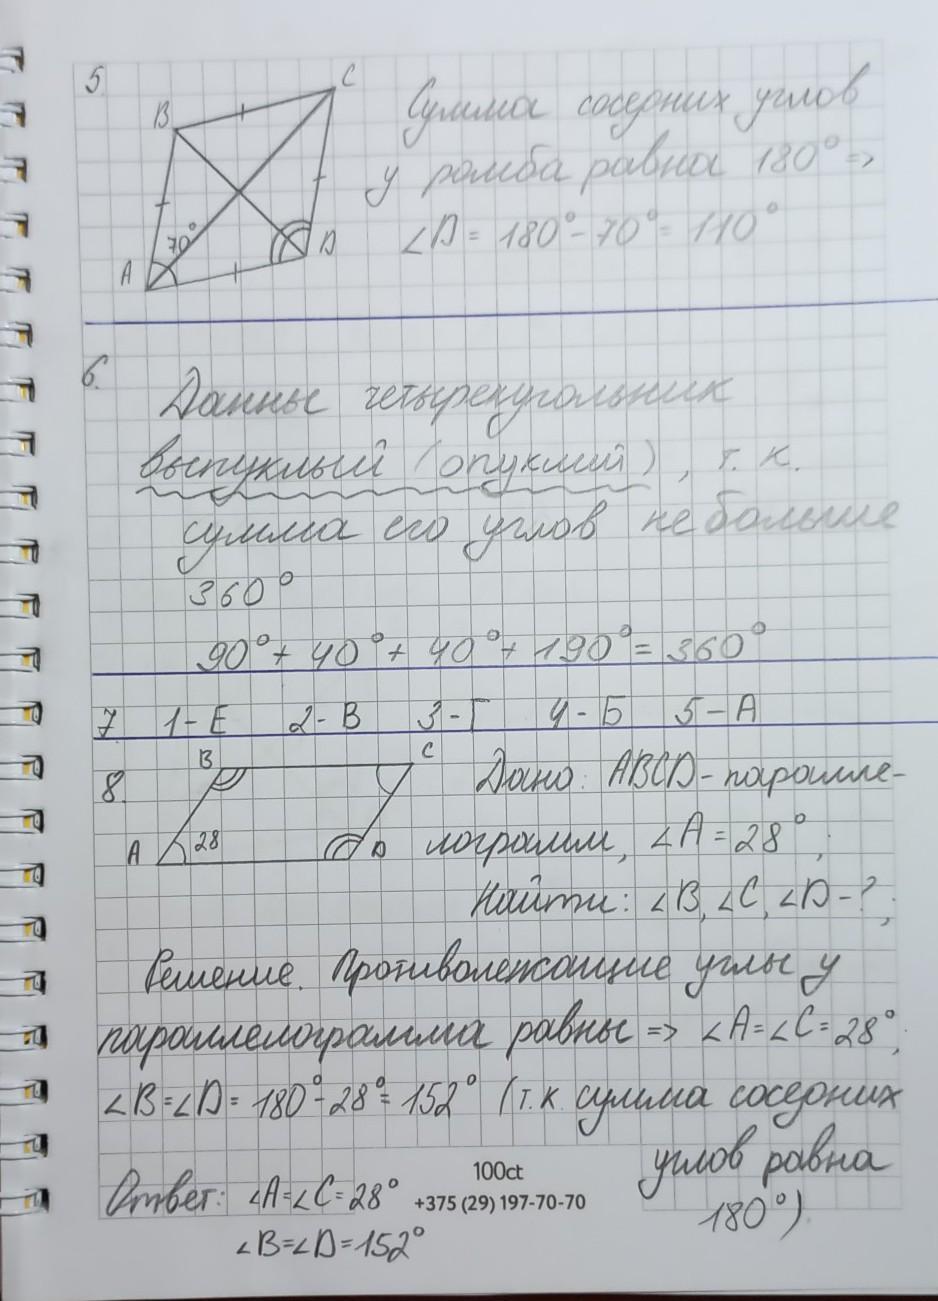 5
B
C
A
D
70°
Сумма соседних углов
у ромба равна 180° =>
∠D = 180° - 70° = 110°
6.
Данные четырехугольник
выпуклый (опуклий), т. к.
сумма его углов не больше
360°
90° + 40° + 40° + 190° = 360°
7 1-Е 2-В 3-Г 4-Б 5-А
8.
B
C
A
28
D
Дано: ABCD - паралле-
лограмм, ∠A = 28°;
Найти: ∠B, ∠C, ∠D - ?;
Решение. Противолежащие углы у
параллелограмма равны => ∠A = ∠C = 28°;
∠B = ∠D = 180° - 28° = 152° (т.к. сумма соседних
углов равна
180°).
Ответ: ∠A = ∠C = 28°
∠B = ∠D = 152°
100ct
+375 (29) 197-70-70